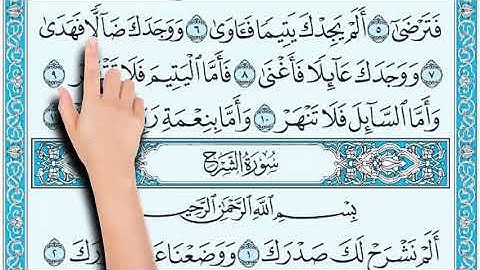 فَتَرْضَىٰٓ ٥ أَلَمْ يَجِدْكَ يَتِيمًا فَـَٔاوَىٰ ٦ وَوَجَدَكَ ضَآلًّا فَهَدَىٰ
٧ وَوَجَدَكَ عَآئِلًا فَأَغْنَىٰ ٨ فَأَمَّا ٱلْيَتِيمَ فَلَا ٩
وَأَمَّا ٱلسَّآئِلَ فَلَا تَنْهَرْ ١٠ وَأَمَّا بِنِعْمَةِ
سُورَةُ الشَّرْحِ
بِسْمِ ٱللَّهِ ٱلرَّحْمَٰنِ ٱلرَّحِيمِ
أَلَمْ نَشْرَحْ لَكَ صَدْرَكَ ١ وَوَضَعْنَا ٢